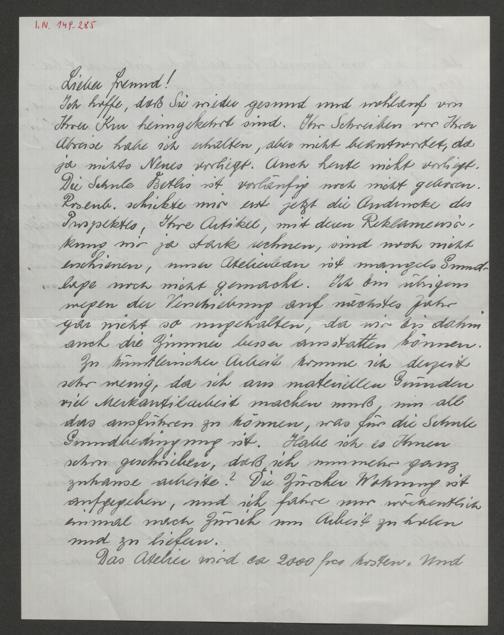 I.N. 149.285
Lieber Freund!
Ich hoffe, daß Sie wieder gesund und wohlauf von
Ihrer Kur heimgekehrt sind. Ihr Schreiben vor Ihrer
Abreise habe ich erhalten, aber nicht beantwortet, da
ja nichts Neues vorliegt. Auch heute nicht vorliegt.
Die Schule Betlis ist vorläufig noch nicht geboren.
Rosenb. schickte mir erst jetzt die Andrucke des
Prospektes, Ihre Artikel, mit deren Reklamewir-
kung wir ja stark rechnen, sind noch nicht
erschienen, unser Atelierbau ist mangels Grund-
lage noch nicht gemacht. Ich bin übrigens
wegen der Verschiebung auf nächstes Jahr
gar nicht so ungehalten, da wir bis dahin
auch die Zimmer besser ausstatten können.
Zu künstlerischer Arbeit komme ich derzeit
sehr wenig, da ich aus materiellen Gründen
viel Merkantilarbeit machen muß, um all
das ausführen zu können, was für die Schule
Grundbedingung ist. Habe ich es Ihnen
schon geschrieben, daß ich nunmehr ganz
zuhause arbeite? Die Zürcher Wohnung ist
aufgegeben, und ich fahre nur wöchentlich
einmal nach Zürich um Arbeit zu holen
und zu liefern.
Das Atelier wird ca 2000 frcs kosten. Und